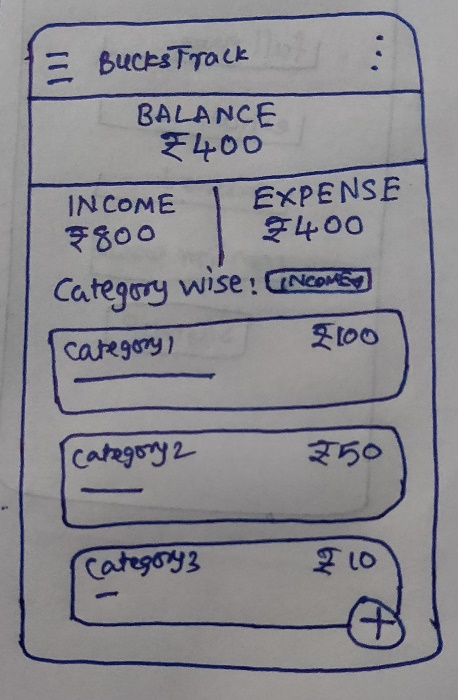 BucksTrack
BALANCE
₹400
INCOME EXPENSE
₹800 ₹400
Category wise: INCOME
Category1 ₹100
Category2 ₹50
Category3 ₹10
+